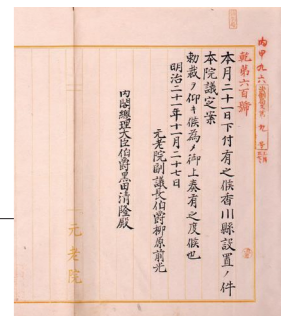 乾第六百號
本月二十一日下付有之候香川縣設置ノ件
本院議定案
勅裁ヲ仰キ候為メ御上奏有之度候也
明治二十一年十一月二十七日
元老院副議長伯爵柳原前光
内閣總理大臣伯爵黑田清隆殿
元老院